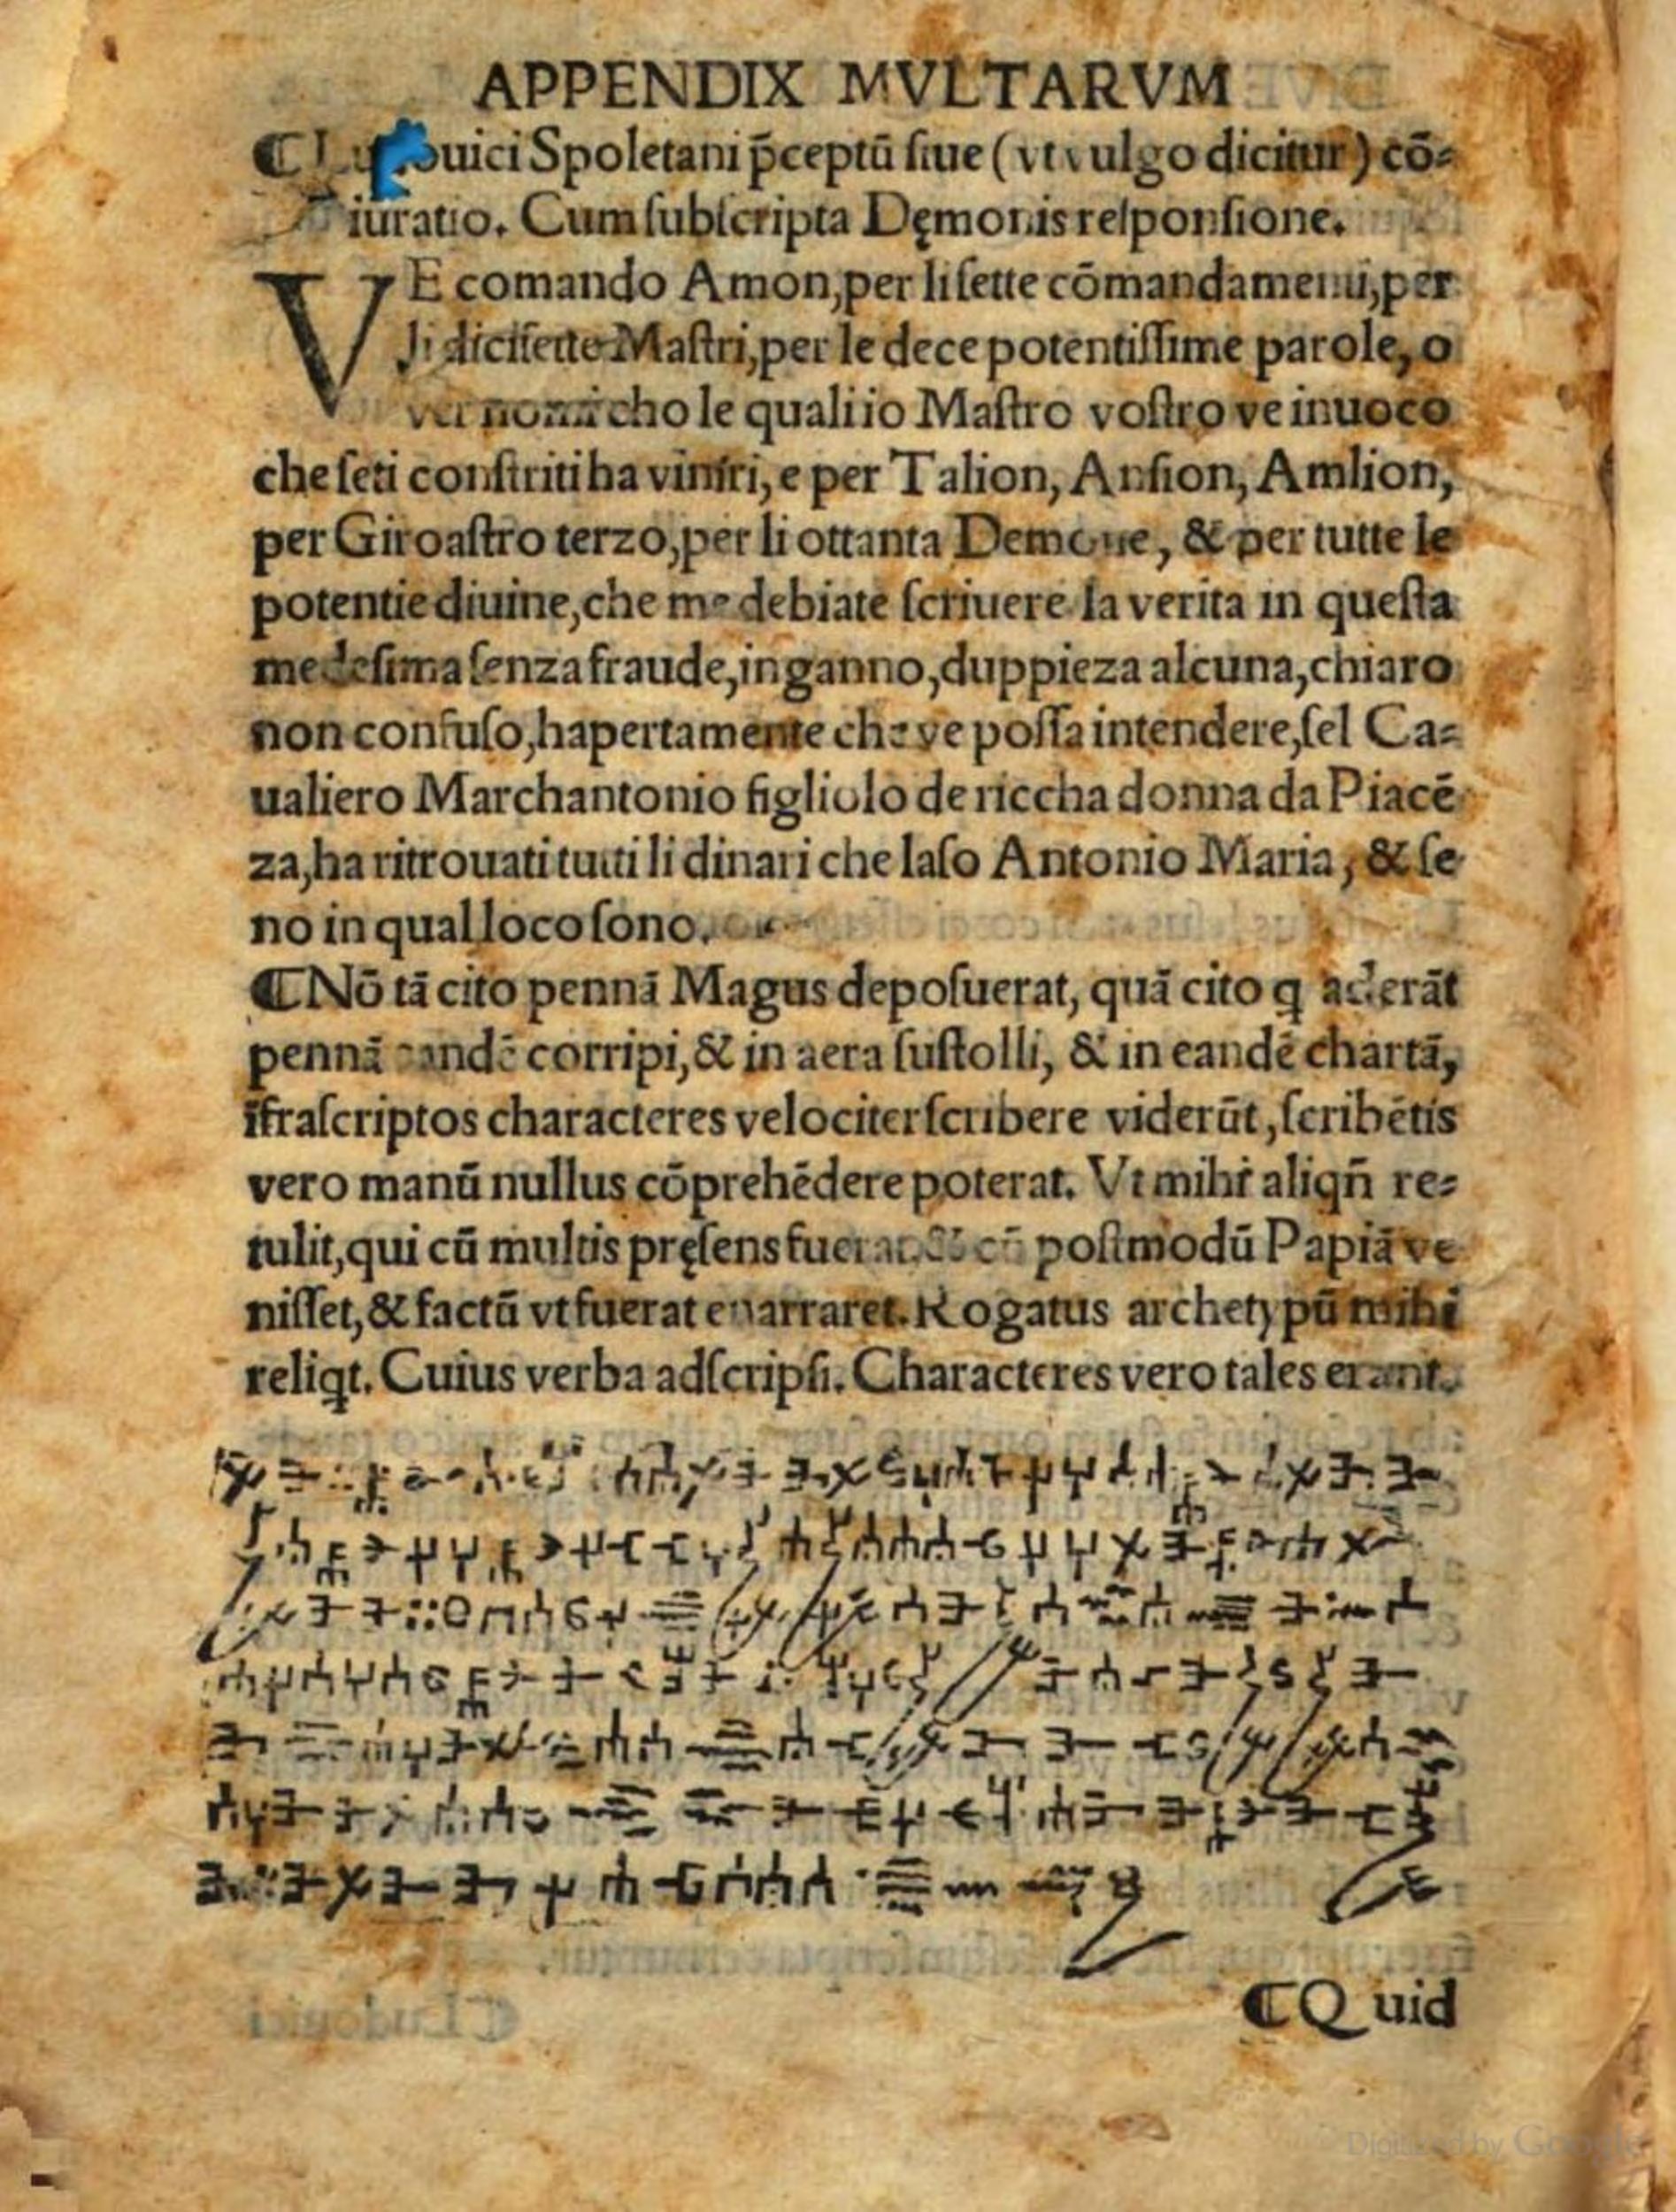 APPENDIX MVLTARVM
ouici Spoletani p̄ceptū ſiue (vt vulgo dicitur) cō⸗
iuratio. Cum ſubſcripta Dęmonis reſponſione.
VE comando Amon, per li ſette cōmandamenti, per
li diciſette Maſtri, per le dece potentiſſime parole, o
ver nomi cho le quali io Maſtro voſtro ve inuoco
che ſeti conſtriti ha viniri, e per Talion, Anſion, Amlion,
per Giroaſtro terzo, per li ottanta Demone, & per tutte le
potentie diuine, che me debiate ſcriuere la verita in queſta
medeſima ſenza fraude, inganno, duppieza alcuna, chiaro
non confuſo, hapertamente che ve poſſa intendere, ſel Ca⸗
ualiero Marchantonio figliolo de riccha donna da Piacē
za, ha ritrouati tutti li dinari che laſo Antonio Maria, & ſe
no in qual loco ſono.
⸿Nō tā cito pennā Magus depoſuerat, quā cito q aderāt
pennā eandē corripi, & in aera ſuſtolli, & in eandē chartā,
īfraſcriptos characteres velociter ſcribere viderūt, ſcribētis
vero manū nullus cōprehēdere poterat. Vt mihi aliqñ re⸗
tulit, qui cū multis pręſens fuerat. & cū poſtmodū Papiā ve
niſſet, & factū vt fuerat enarraret. Rogatus archetypū mihi
reliqt. Cuius verba adſcripſi. Characteres vero tales erant.
⸿Quid
Digitized by Google